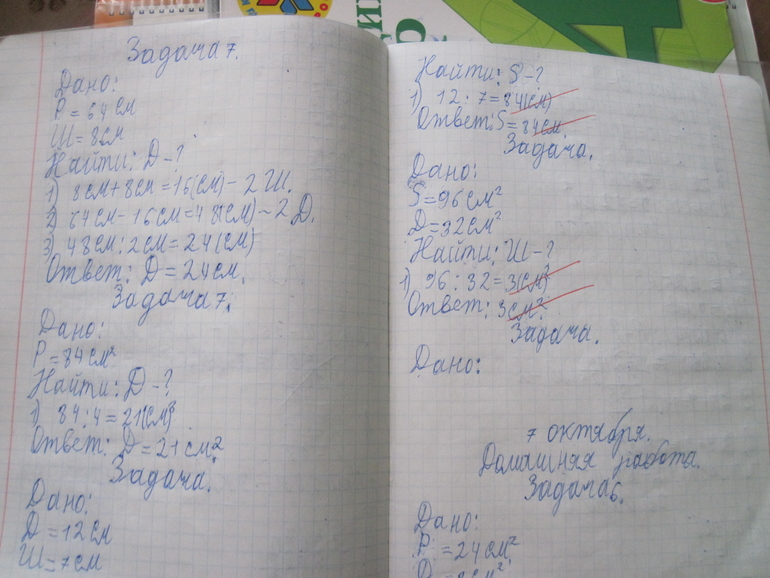 Задача 7.
Дано:
P = 64 см
Ш = 8см
Найти: D - ?
1) 8см+8см=16(см) - 2 Ш.
2) 64см-16см=48(см) - 2 D.
3) 48см:2см=24(см)
Ответ: D = 24см.
Задача 7.
Дано:
P = 84 см²
Найти: D - ?
1) 84:4=21(см)²
Ответ: D=21 см²
Задача.
Дано:
D = 12см
Ш = 7см
Найти: S - ?
1) 12 · 7 = 84(см)
Ответ: S = 84см.
Задача.
Дано:
S = 96см²
D = 32см²
Найти: Ш - ?
1) 96 : 32 = 3(см)²
Ответ: 3см².
Задача.
Дано:
7 октября.
Домашняя работа.
Задача 6.
Дано:
P = 24 см²